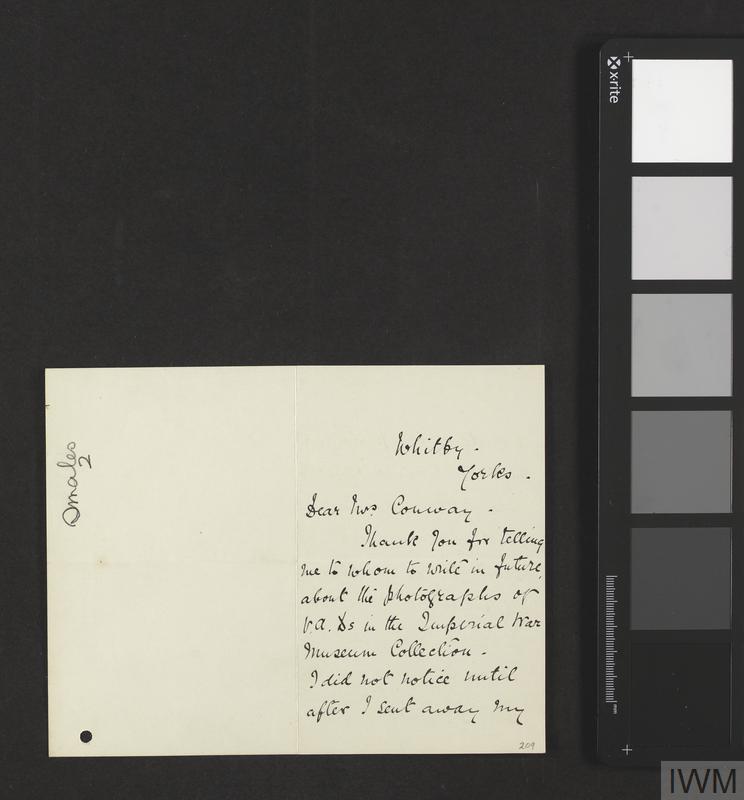 Whitby.
Yorks.
Dear Mrs Conway.
Thank you for telling
me to whom to write in future,
about the photographs of
V.A.Ds in the Imperial War
Museum Collection.
I did not notice until
after I sent away my
209
2
x-rite
mm
IWM